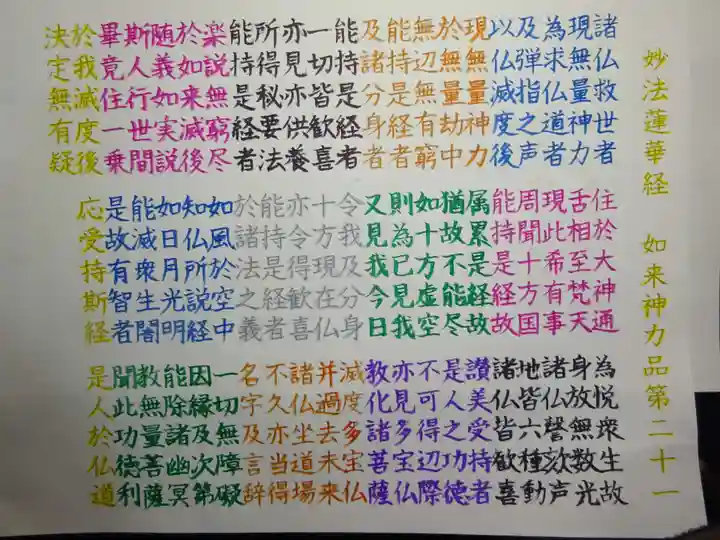 妙法蓮華経 如来神力品第二十一
諸仏救世者
住於大神通
為悦衆生故
現無量神力
舌相至梵天
身放無数光
為求仏道者
現此希有事
諸仏謦欬声
及弾指之声
周聞十方国
地皆六種動
以仏滅度後
能持是経故
諸仏皆歓喜
現無量神力
属累是経故
讃美受持者
於無量劫中
猶故不能尽
是人之功徳
無辺無有窮
如十方虚空
不可得辺際
能持是経者
則為已見我
亦見多宝仏
及諸分身者
又見我今日
教化諸菩薩
能持是経者
令我及分身
滅度多宝仏
一切皆歓喜
十方現在仏
并過去未来
亦見亦供養
亦令得歓喜
諸仏坐道場
所得秘要法
能持是経者
不久亦当得
能持是経者
於諸法之義
名字及言辞
楽説無窮尽
如風於空中
一切無障礙
於如来滅後
知仏所説経
因縁及次第
随義如実説
如日月光明
能除諸幽冥
斯人行世間
能滅衆生闇
教無量菩薩
畢竟住一乗
是故有智者
聞此功徳利
於我滅度後
応受持斯経
是人於仏道
決定無有疑